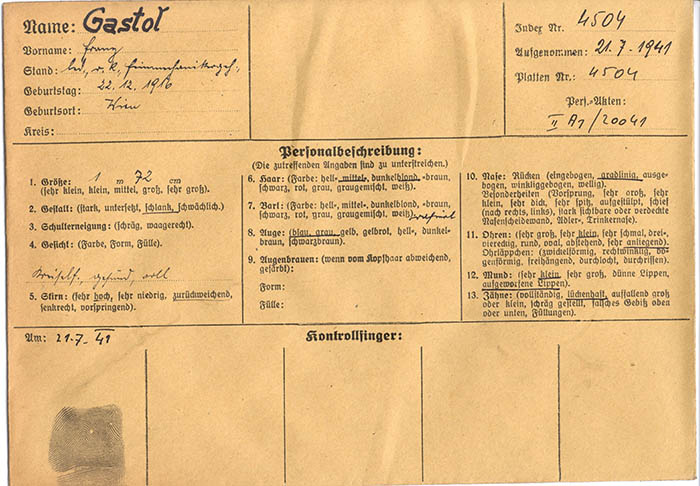 Name: Gastol
Vorname: Franz
Stand: led., r. k., Feinmechanikergeh.
Geburtstag: 22. 12. 1916
Geburtsort: Wien
Kreis:
Index Nr. 4504
Aufgenommen: 21. 7. 1941
Platten Nr.: 4504
Pers.-Akten:
II A1/20041
Personalbeschreibung:
(Die zutreffenden Angaben sind zu unterstreichen.)
1. Größe: 1 m 72 cm
(sehr klein, klein, mittel, groß, sehr groß).
2. Gestalt: (stark, untersetzt, schlank, schwächlich.)
3. Schulterneigung: (schräg, waagerecht).
4. Gesicht: (Farbe, Form, Fülle).
gesund, voll
5. Stirn: (sehr hoch, sehr niedrig, zurückweichend,
senkrecht, vorspringend).
6. Haar: (Farbe: hell-, mittel-, dunkelblond, -braun,
schwarz, rot, grau, graugemischt, weiß).
7. Bart: (Farbe: hell-, mittel-, dunkelblond, -braun,
schwarz, rot, grau, graugemischt, weiß) rasiert
8. Auge: (blau, grau, gelb, gelbrot, hell-, dunkel-
braun, schwarzbraun).
9. Augenbrauen: (wenn vom Kopfhaar abweichend,
gefärbt):
Form:
Fülle:
10. Nase: Rücken (eingebogen, gradlinig, ausge-
bogen, winkliggebogen, wellig).
Besonderheiten (Vorsprung, sehr groß, sehr
klein, sehr dick, sehr spitz, aufgestülpt, schief
(nach rechts, links), stark sichtbare oder verdeckte
Nasenscheidewand, Adler-, Trinkernase).
11. Ohren: (sehr groß, sehr klein, sehr schmal, drei-,
viereckig, rund, oval, abstehend, sehr anliegend).
Ohrläppchen: (zwickelförmig, rechtwinklig, bo-
genförmig, freihängend, durchlocht, durchrissen).
12. Mund: (sehr klein, sehr groß, dünne Lippen,
aufgeworfene Lippen).
13. Zähne: (vollständig, lückenhaft, auffallend groß
oder klein, schräg gestellt, falsches Gebiß oben
oder unten, Füllungen).
Am: 21. 7. 41
Kontrollfinger: